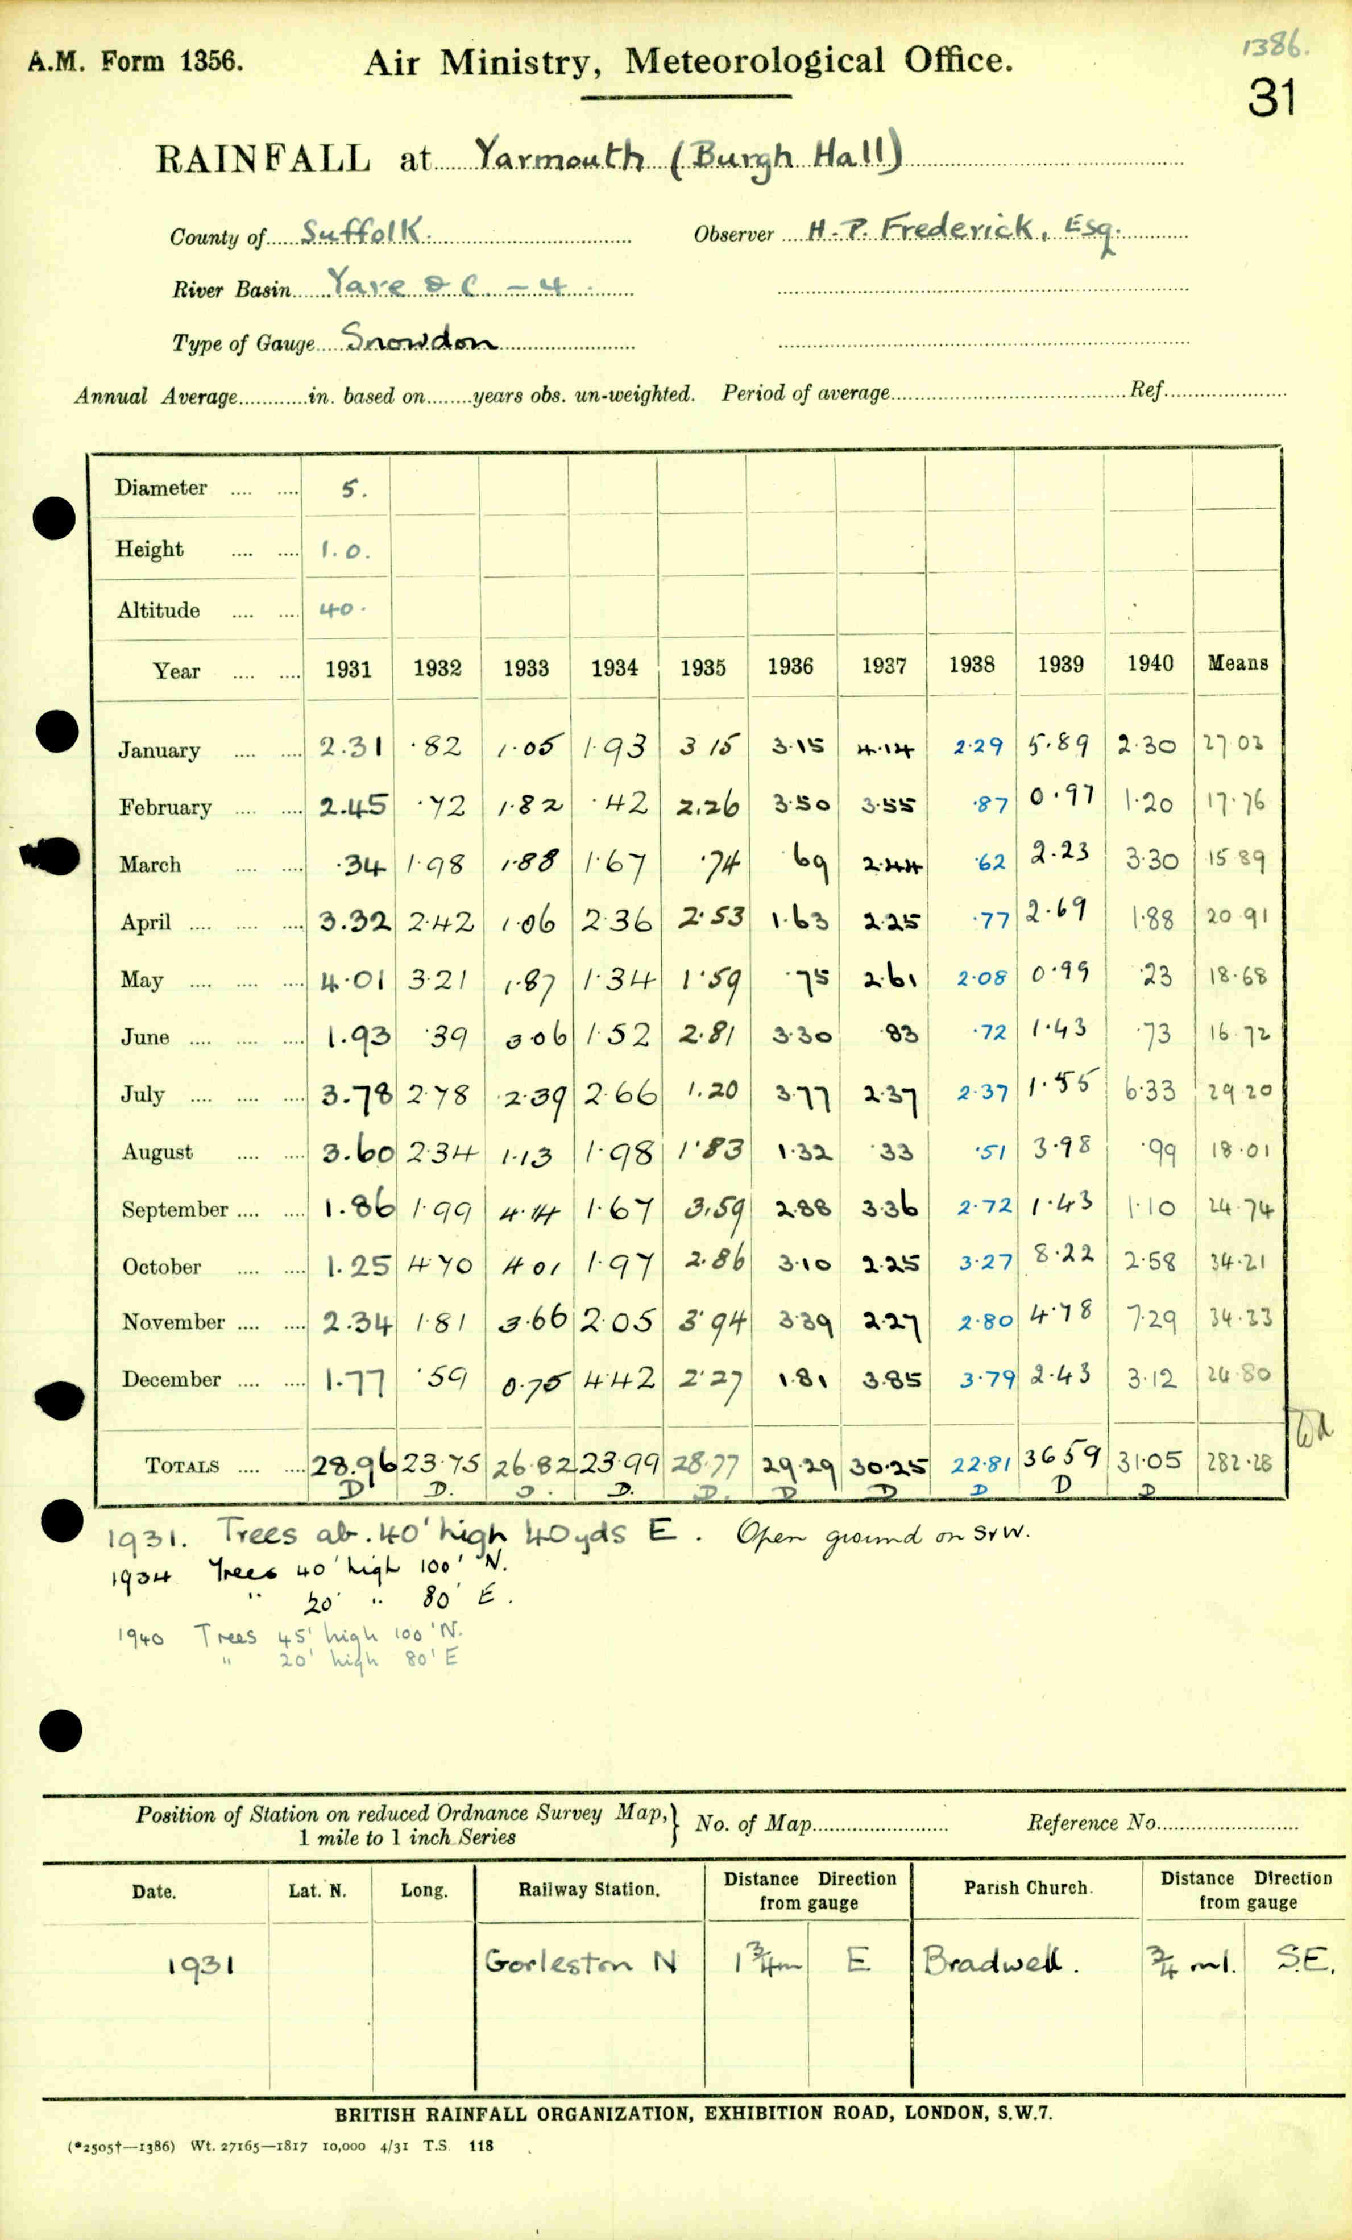 1386.
A.M. Form 1356. Air Ministry, Meteorological Office.
31
RAINFALL at Yarmouth (Burgh Hall)
County of Suffolk. Observer H. P. Frederick, Esq.
River Basin Yare & C. - 4
Type of Gauge Snowdon
Annual Average............in. based on........years obs. un-weighted. Period of average.................... Ref..............
Diameter .... .... 5.
Height .... .... 1.0.
Altitude .... .... 40.
Year .... .... 1931 1932 1933 1934 1935 1936 1937 1938 1939 1940 Means
January .... .... 2.31 .82 1.05 1.93 3 15 3.15 4.14 2.29 5.89 2.30 27 03
February .... .... 2.45 .72 1.82 .42 2.26 3.50 3.55 .87 0.97 1.20 17.76
March .... .... .34 1.98 1.88 1.67 .74 69 2.44 .62 2.23 3.30 15 89
April .... .... .... 3.32 2.42 1.06 2 36 2.53 1.63 2.25 .77 2.69 1.88 20 91
May .... .... .... 4.01 3.21 1.87 1.34 1.59 .75 2.61 2.08 0.99 .23 18.68
June .... .... .... 1.93 .39 3 06 1.52 2.81 3.30 .83 .72 1.43 .73 16 72
July .... .... .... 3.78 2.78 2.39 2.66 1.20 3.77 2.37 2.37 1.55 6.33 29 20
August .... .... 3.60 2.34 1.13 1.98 1.83 1.32 .33 .51 3.98 .99 18.01
September .... .... 1.86 1.99 4.14 1.67 3.59 2.88 3.36 2.72 1.43 1.10 24.74
October .... .... 1.25 4.70 4 01 1.97 2.86 3.10 2.25 3.27 8.22 2.58 34.21
November .... .... 2.34 1.81 3.66 2.05 3.94 3.39 2.27 2.80 4.78 7.29 34.33
December .... .... 1.77 .59 0.75 4.42 2.27 1.81 3.85 3.79 2.43 3.12 24.80
TOTALS .... .... 28.96 23.75 26.82 23.99 28.77 29.29 30.25 22.81 36 59 31.05 282.28
D D. D. D. D. D D D D D
1931. Trees ab. 40' high 40yds E. Open ground on S & W.
1934 Trees 40' high 100' N.
" 20' " 80' E.
1940 Trees 45' high 100' N.
" 20' high 80' E
Position of Station on reduced Ordnance Survey Map,} No. of Map.............. Reference No..............
1 mile to 1 inch Series
Date. Lat. N. Long. Railway Station. Distance from gauge Direction Parish Church. Distance from gauge Direction
1931 Gorleston N 1 3/4 m E Bradwell. 3/4 ml. S.E.
BRITISH RAINFALL ORGANIZATION, EXHIBITION ROAD, LONDON, S.W.7.
(*2505†—1386) Wt. 27165—1817 10,000 4/31 T.S. 118